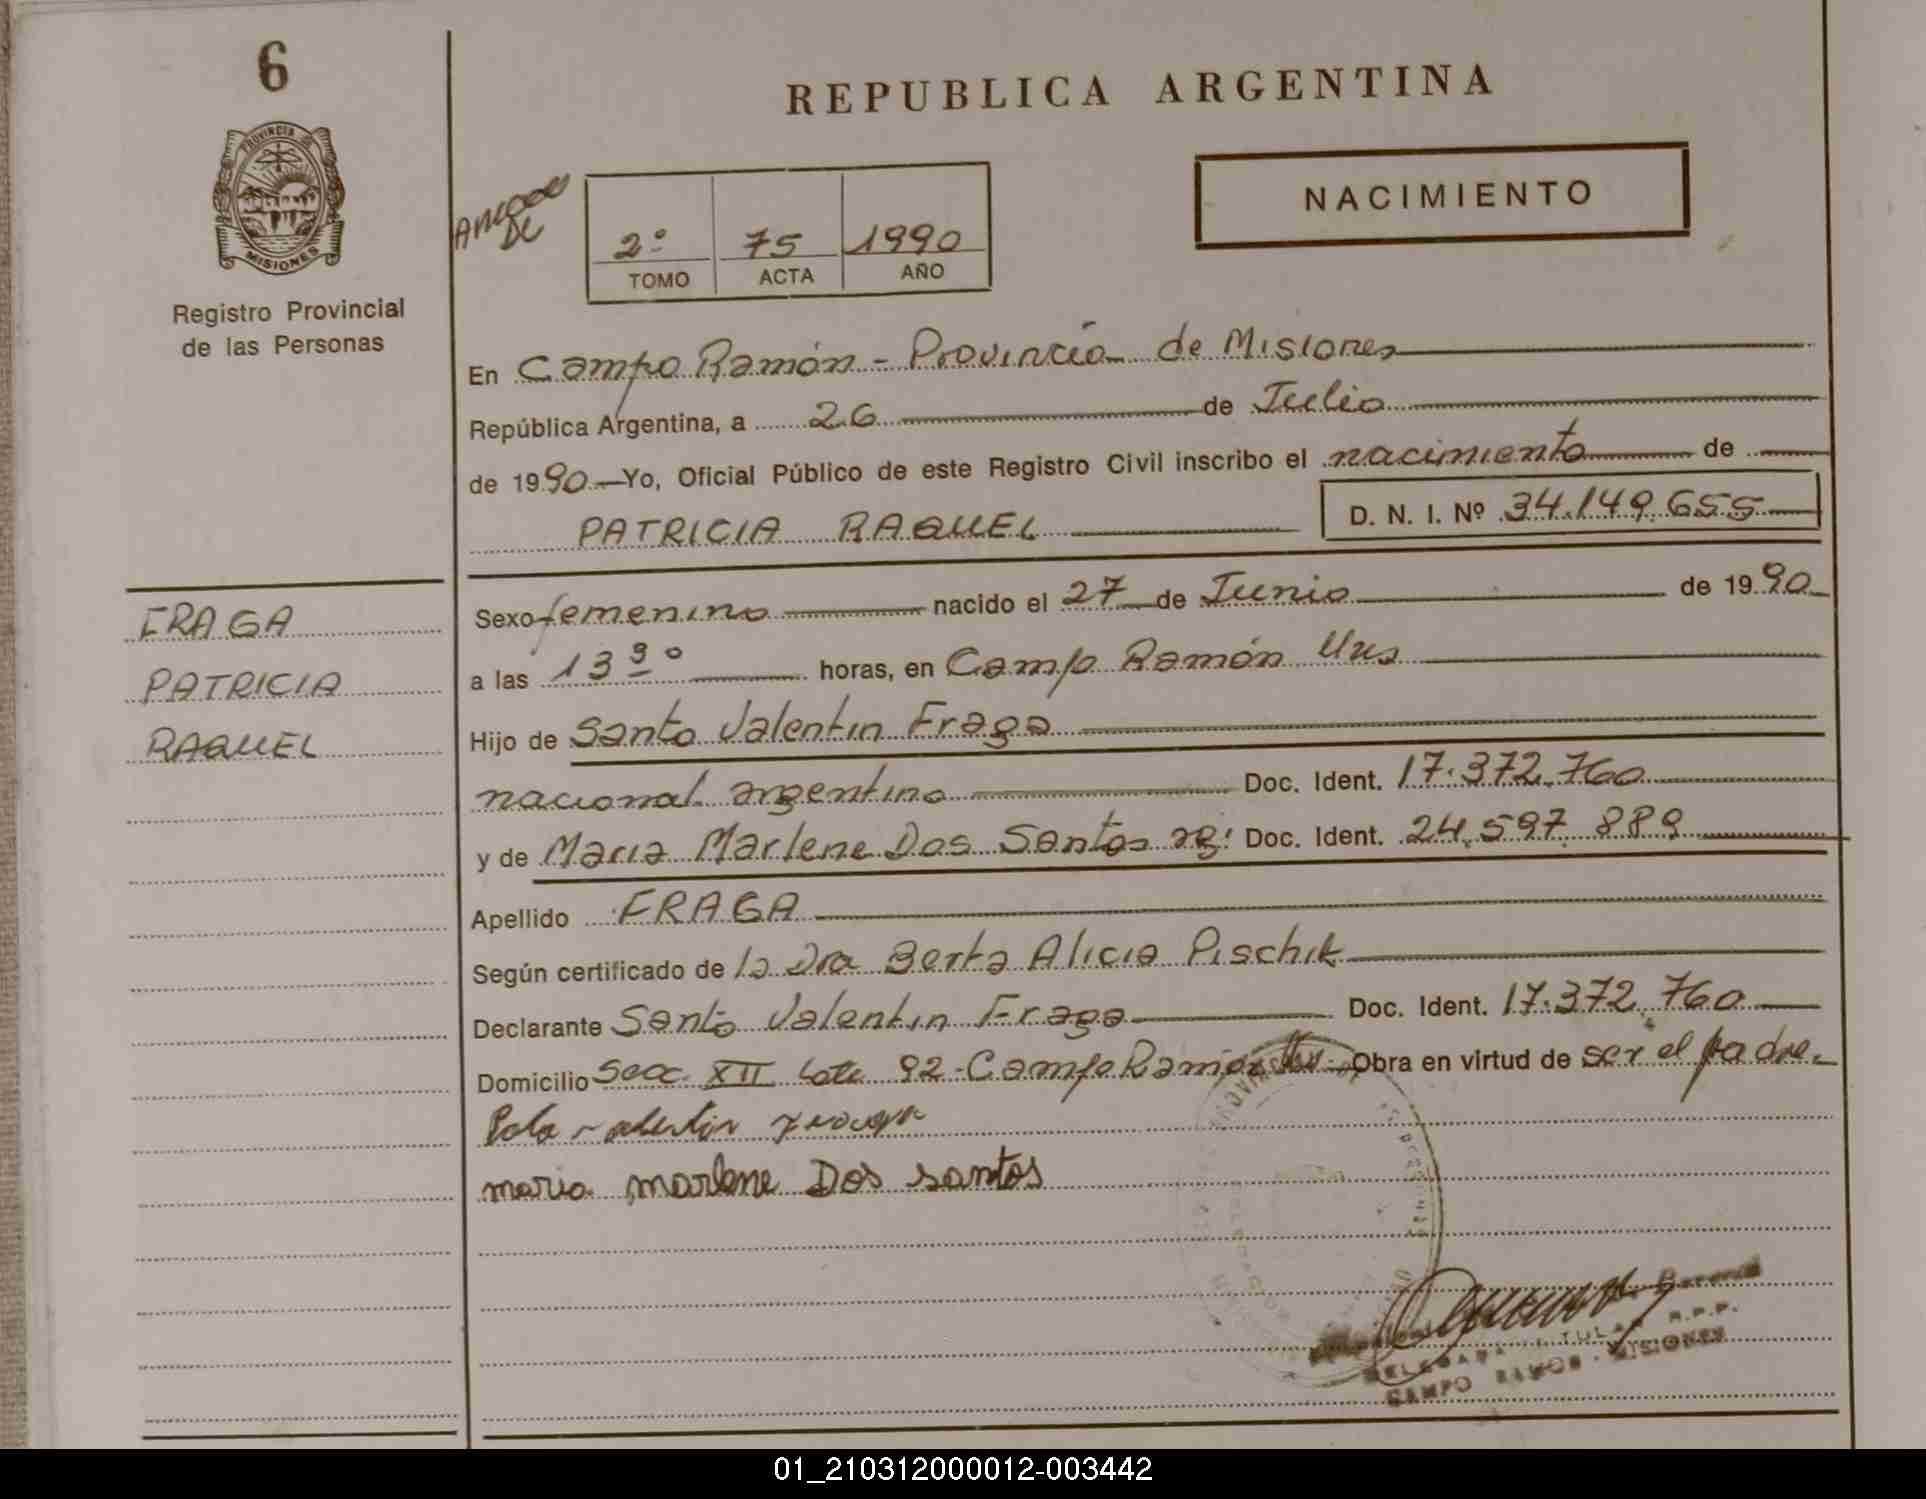 6
REPUBLICA ARGENTINA
PROVINCIA DE
MISIONES
Registro Provincial
de las Personas
DE
2º 75 1990
TOMO ACTA AÑO
NACIMIENTO
En Campo Ramón - Provincia de Misiones
República Argentina, a 26 de Julio
de 1990 Yo, Oficial Público de este Registro Civil inscribo el nacimiento de
PATRICIA RAQUEL D. N. I. Nº 34.149.655
FRAGA
PATRICIA
RAQUEL
Sexo femenino nacido el 27 de Junio de 1990
a las 13 30 horas, en Campo Ramón Mns
Hijo de Santo Valentin Fraga
nacional. argentino Doc. Ident. 17.372.760
y de Maria Marlene Dos Santos ag: Doc. Ident. 24.597.889
Apellido FRAGA
Según certificado de la Dra Berta Alicia Pischik
Declarante Santo Valentin Fraga Doc. Ident. 17.372.760
Domicilio Secc. XII Lote 92 - Campo Ramón Obra en virtud de ser el padre.
maria marlene Dos santos
DELEGADA TITULAR R.P.P.
CAMPO RAMON - MISIONES
01_210312000012-003442